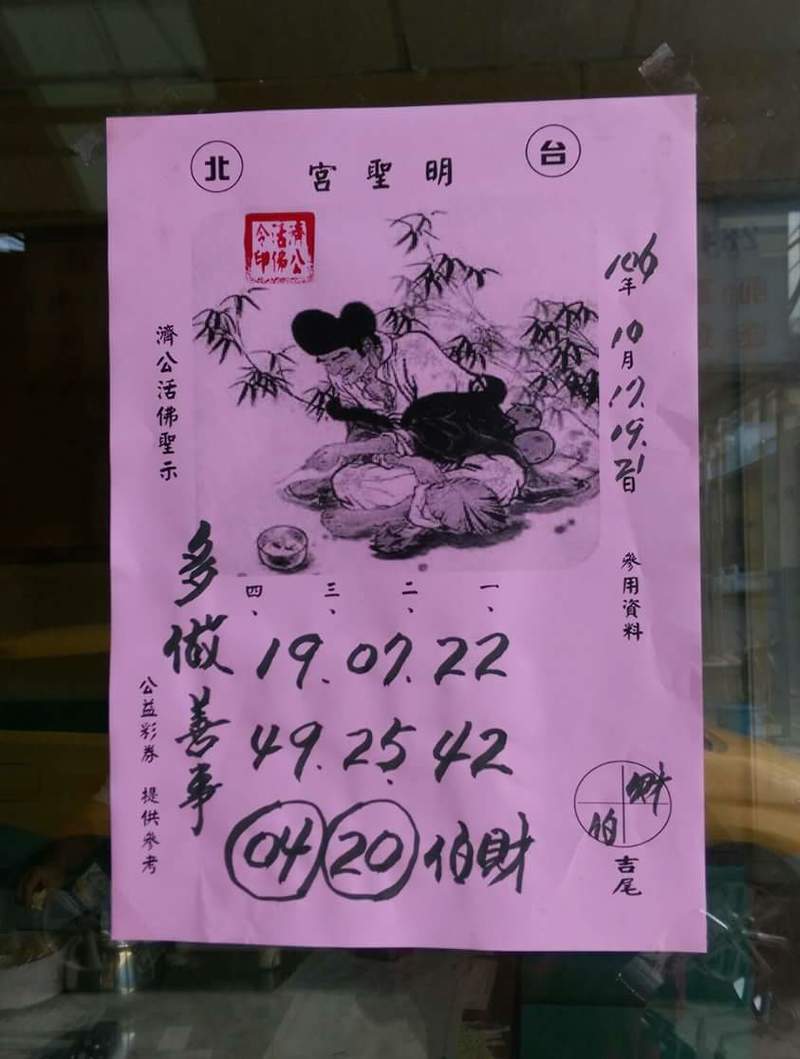 台北
明聖宮
濟公活佛令印
106年10月17.19.21日
參用資料
濟公活佛聖示
一、二、三、四、
19.07.22
49.25.42
04 20 伯財
多做善事
公益彩券 提供參考
財
伯
吉尾